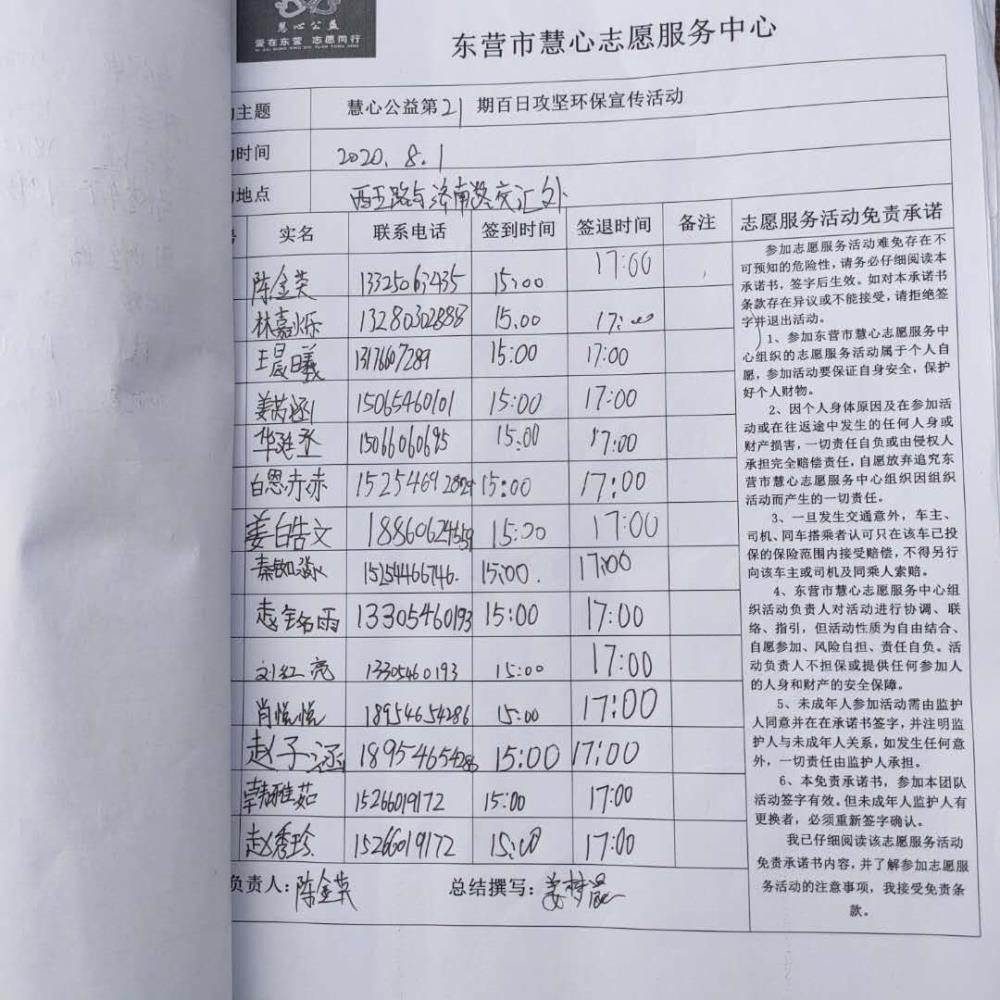 慧心公益
爱在东营 志愿同行
东营市慧心志愿服务中心
主题 慧心公益第21期百日攻坚环保宣传活动
时间 2020.8.1
地点 西五路与济南路交汇处
实名 联系电话 签到时间 签退时间 备注
陈金英 13325063435 15:00 17:00
林嘉烁 13280302888 15.00 17:00
王晨曦 1317607289 15:00 17:00
姜芮涵 15065460101 15:00 17:00
华延丞 15066060695 15:00 17:00
白恩赫 15254692829 15:00 17:00
姜皓文 18860624559 15:00 17:00
秦 15254466746. 15:00. 17:00
赵铭雨 13305460193 15:00 17:00
刘红亮 13305460193 15:00 17:00
肖悦悦 18954654286 15:00 17:00
赵子涵 18954654286 15:00 17:00
韩雅茹 15266019172 15:00 17:00
赵秀珍 15266019172 15:00 17:00
负责人:陈金英 总结撰写:姜梦
志愿服务活动免责承诺
参加志愿服务活动难免存在不
可预知的危险性，请务必仔细阅读本
承诺书，签字后生效。如对本承诺书
条款存在异议或不能接受，请拒绝签
字并退出活动。
1、参加东营市慧心志愿服务中
心组织的志愿服务活动属于个人自
愿，参加活动要保证自身安全，保护
好个人财物。
2、因个人身体原因及在参加活
动或在往返途中发生的任何人身或
财产损害，一切责任自负或由侵权人
承担完全赔偿责任，自愿放弃追究东
营市慧心志愿服务中心组织因组织
活动而产生的一切责任。
3、一旦发生交通意外，车主、
司机、同车搭乘者认可只在该车已投
保的保险范围内接受赔偿，不得另行
向该车主或司机及同乘人索赔。
4、东营市慧心志愿服务中心组
织活动负责人对活动进行协调、联
络、指引，但活动性质为自由结合、
自愿参加、风险自担、责任自负。活
动负责人不担保或提供任何参加人
的人身和财产的安全保障。
5、未成年人参加活动需由监护
人同意并在在承诺书签字，并注明监
护人与未成年人关系，如发生任何意
外，一切责任由监护人承担。
6、本免责承诺书，参加本团队
活动签字有效。但未成年人监护人有
更换者，必须重新签字确认。
我已仔细阅读该志愿服务活动
免责承诺书内容，并了解参加志愿服
务活动的注意事项，我接受免责条
款。